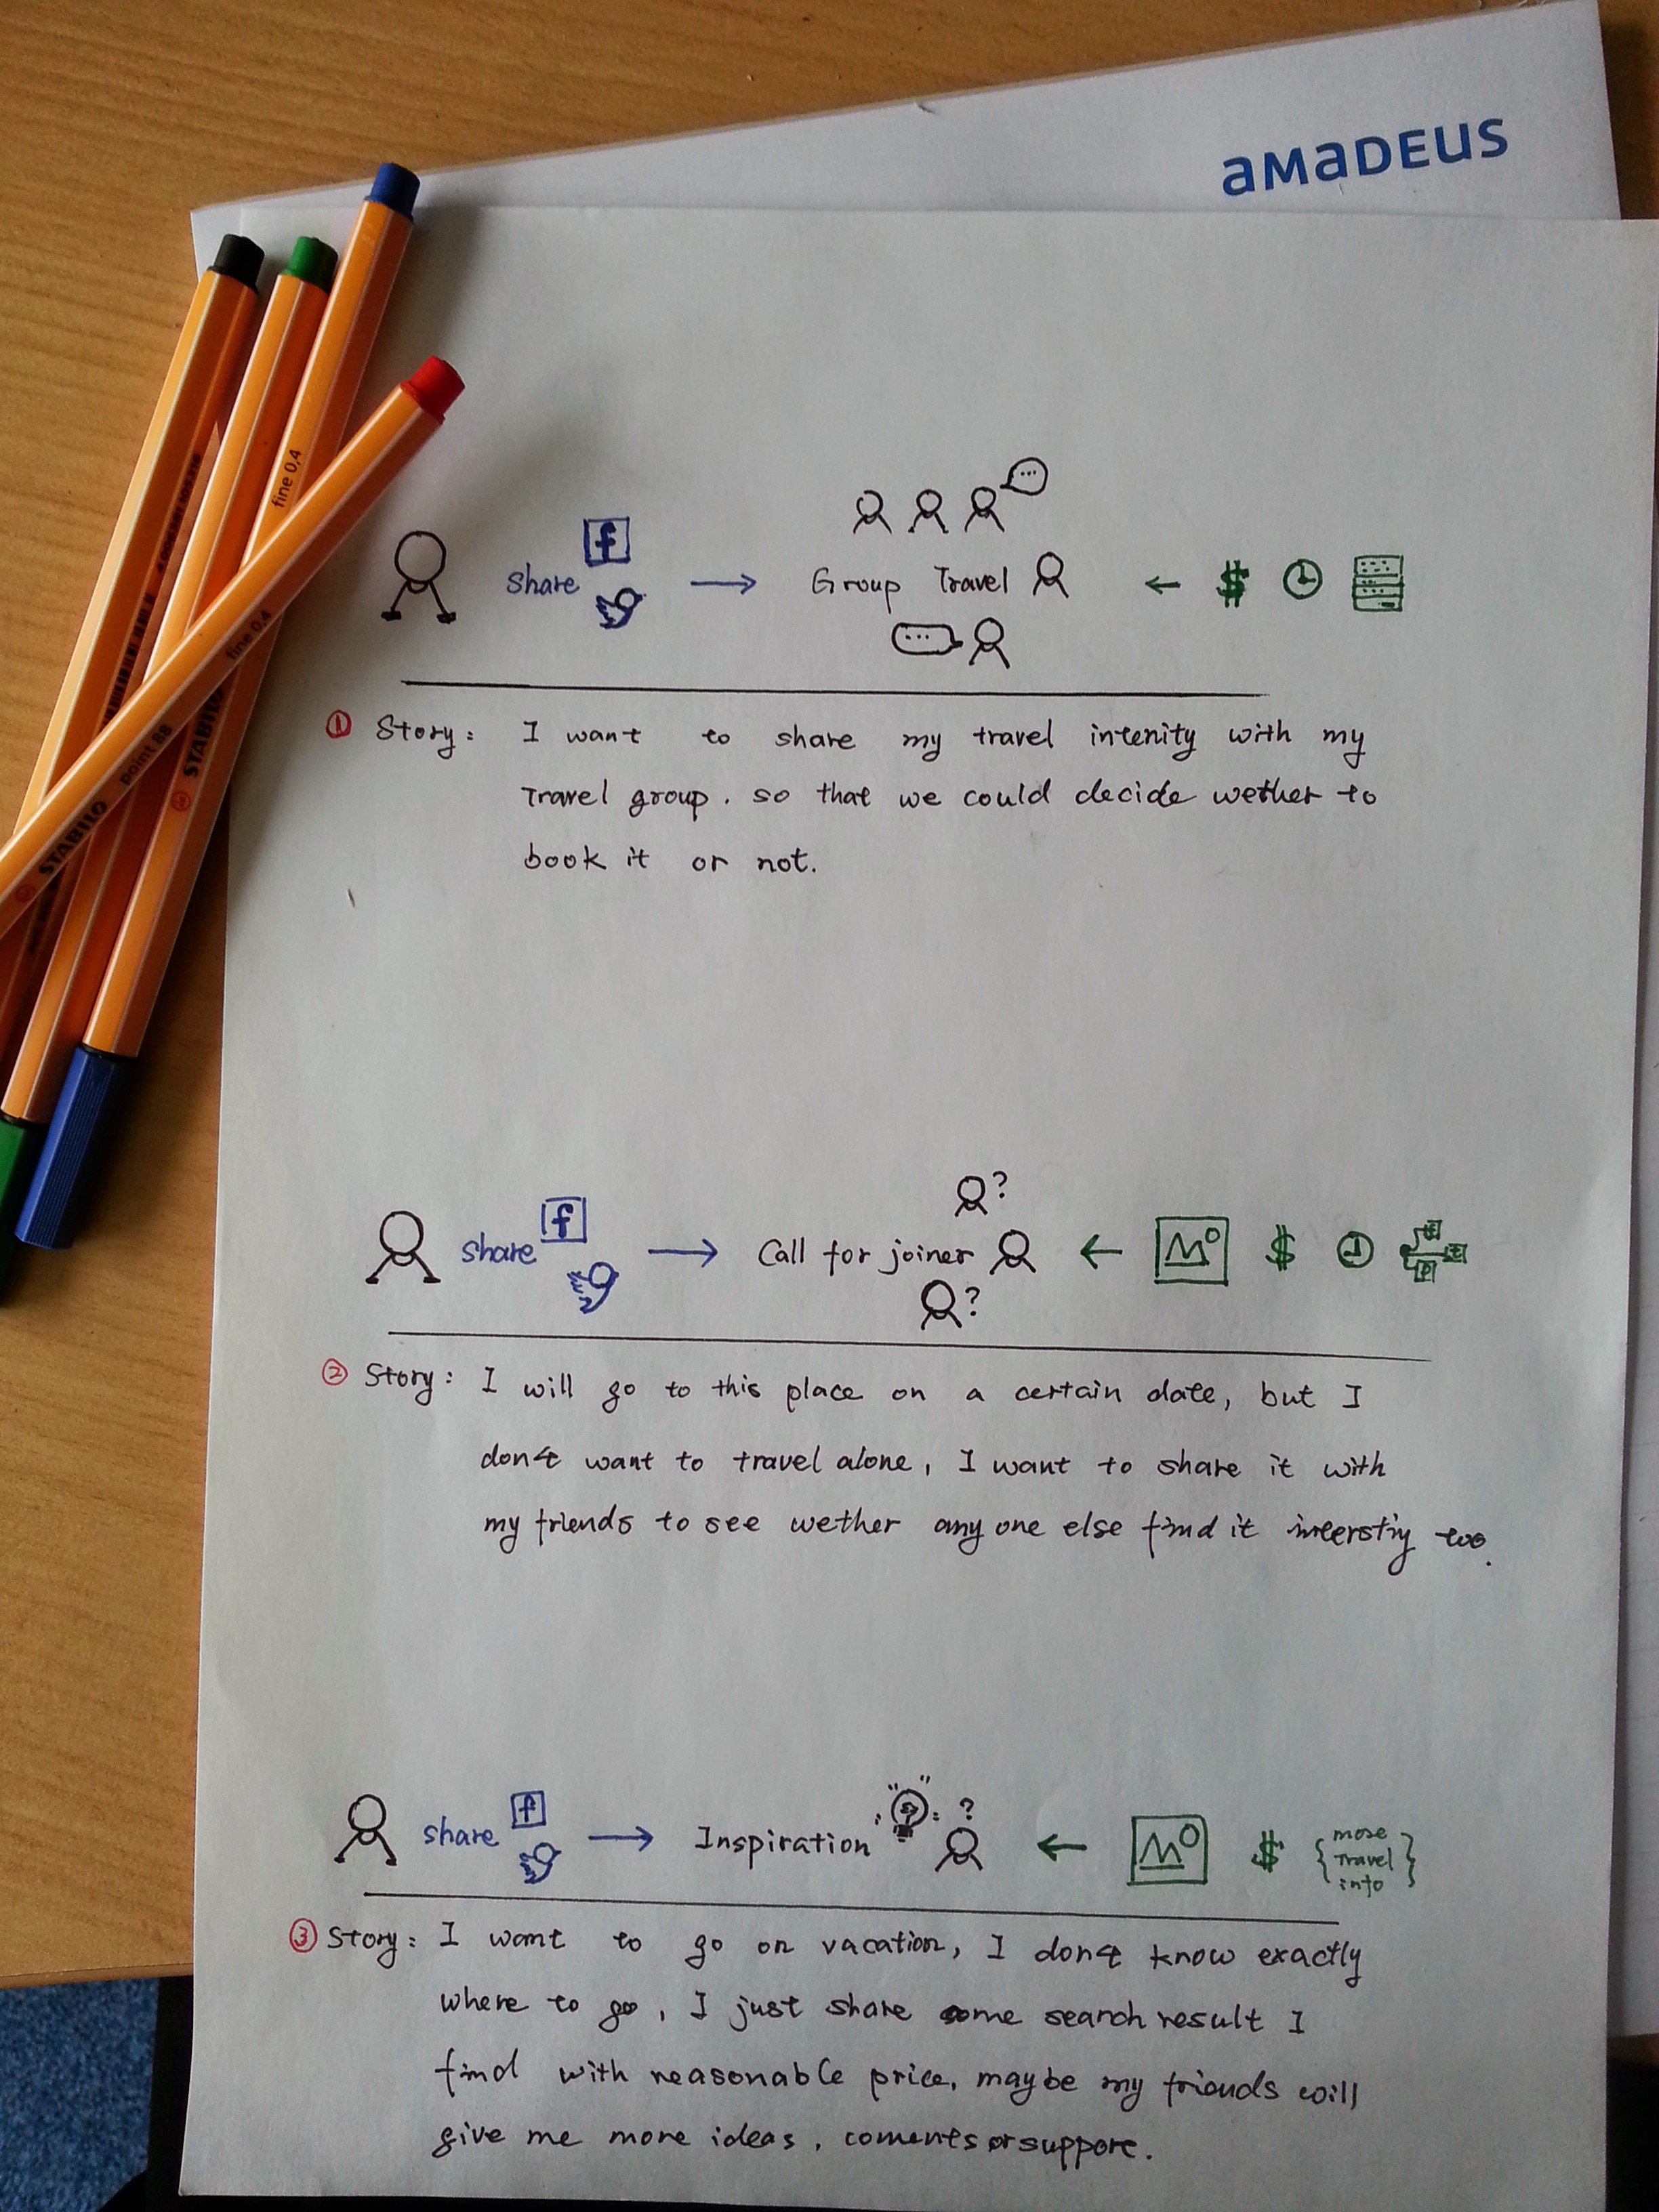 amadeus
fine 0,4
fine 0,4
point 88
STABILO
STABILO
share f
Group Travel
$
① Story: I want to share my travel intenity with my
Travel group. so that we could decide wether to
book it or not.
?
share f
Call for joiner
$
?
② Story: I will go to this place on a certain date, but I
don't want to travel alone, I want to share it with
my friends to see wether any one else find it interstiy too.
share f
Inspiration
? ?
$
{more
Travel
info}
③ Story: I want to go on vacation, I don't know exactly
where to go, I just share some search result I
find with reasonable price, maybe my friends will
give me more ideas, coments or suppore.